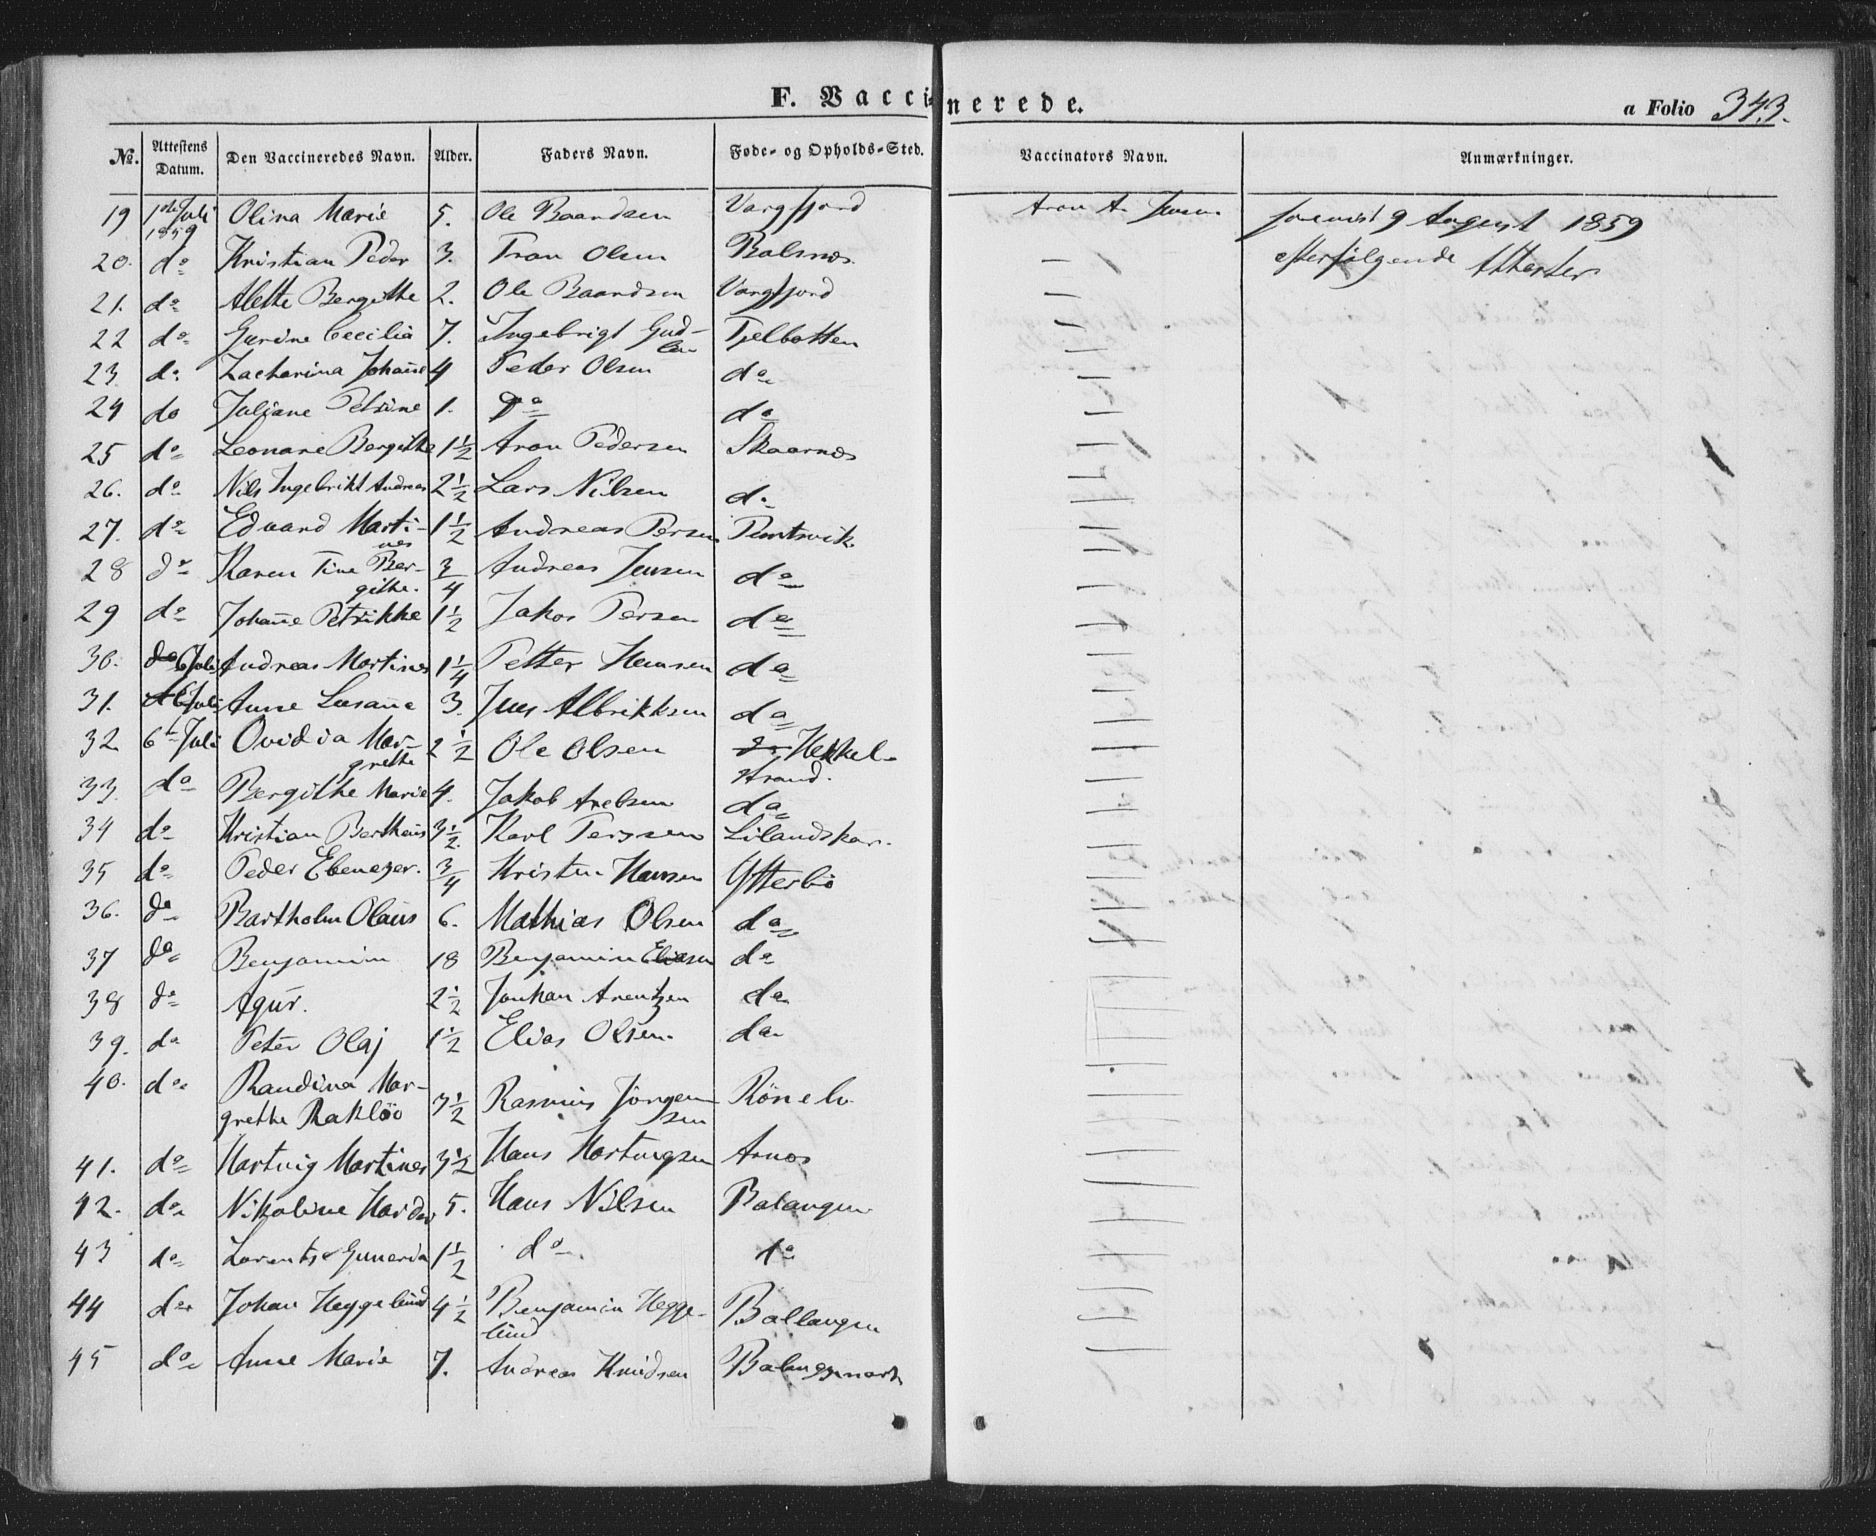 F. Vaccinerede. a Folio 343.
No. Attestens Datum. Den Vaccineredes Navn. Alder. Faders Navn. Føde- og Opholds-Sted. Vaccinators Navn. Anmærkninger.
19 1ste Juli 1859 Olina Marie 5. Ole Baardsen Vargfjord Aron A. Jensen 9 August 1859
20. do Kristian Peder 3. Tron Olsen Balsnes — efterfølgende Attester
21. do Alette Bergitte 2. Ole Baardsen Vargfjord —
22 do Gurine Cecilia 7. Ingebrigt Tjelbotten —
23 do Zacharina Johanne 4 Peder Olsen do —
24 do Juliane Petrine 1. do do —
25 do Leonare Bergithe 1 1/2 Aron Pedersen Skaarnes —
26. do Nils Ingebrikt Andreas 2 1/2 Lars Nilsen do —
27. do Edvard Martines 1 1/2 Andreas Persen —
28 do Karen Tine Bergithe. 3/4 Andreas Jensen do —
29 do Johanne Petrikke 1 1/2 Jakob Persen do —
30. 6 Juli Andreas Martines 1 1/4 Petter Hansen do —
31. 6 Juli Anne Susanne 3. Jens Albrikksen do —
32 6te Juli Ovidia Margrethe 2 1/2 Ole Olsen Hekkelstrand. —
33. do Bergithe Marie 4. Jakob Axelsen do —
34 do Kristian Bertheus 3 1/2 Karl Perssen —
35 do Peder Ebenezer. 3/4 Kristen Hansen Ytterbö —
36. do Bartholm Olaus 6. Mathias Olsen do —
37 do Benjamin 18 Benjamin Eliasen do —
38 do Agur. 2 1/2 Johan Arentzen do —
39. do Peter Olaj 1 1/2 Elias Olsen do —
40. do Randina Margrethe 3 1/2 Rasmus Jörgensen —
41. do Hartvig Martines 3 1/2 Hans Hartvigsen Arnes —
42. do Nikoline 5. Hans Nilsen Balangen —
43 do 1 1/2 do do —
44 do Johan Heggelund 4 1/2 Benjamin Heggelund Ballangen —
45 do Anne Marie 7. Andreas Knudsen —